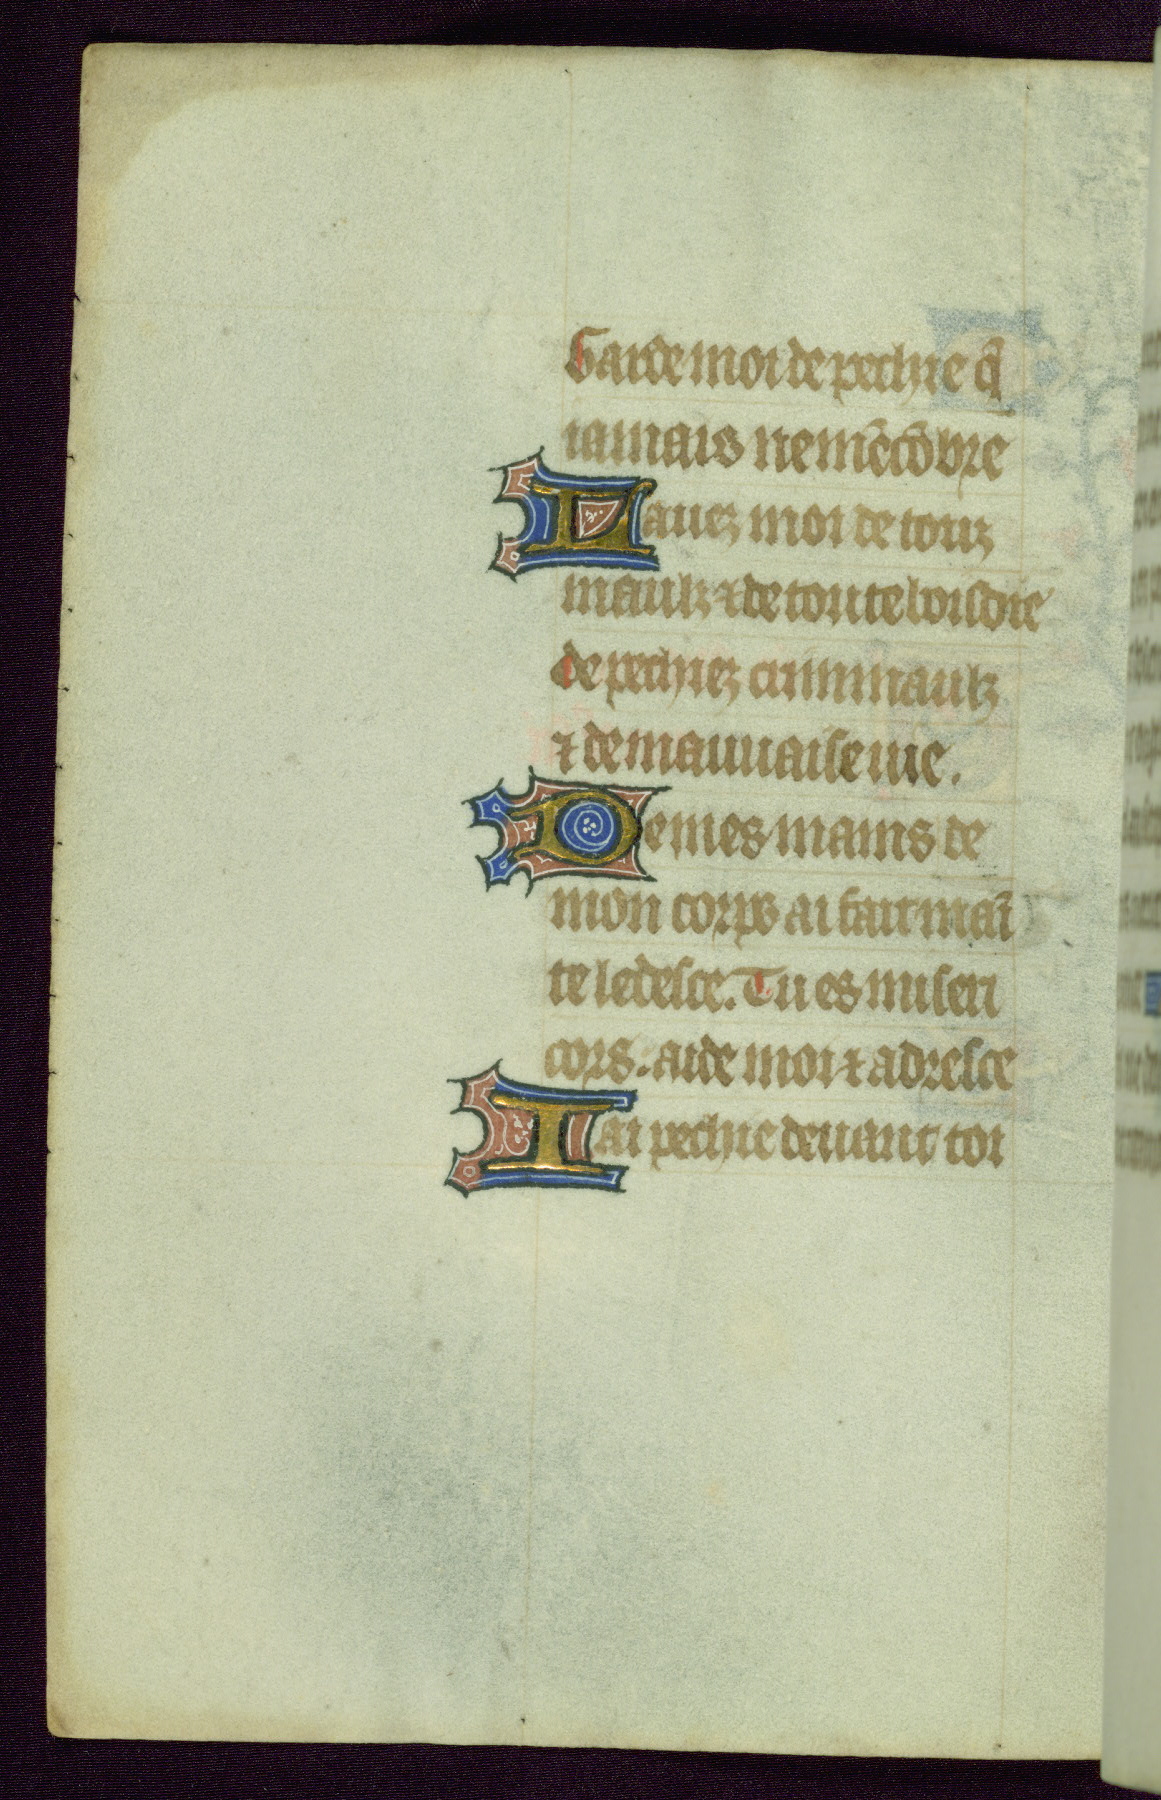 Garde moi de pechie q̃
iamais ne mẽcõbre
Lauez moi de touz
maulz ⁊ de toute boisdie
de pechiez criminaulz
⁊ de mauuaise uie.
De mes mains de
mon corps ai fait mai͂
te ledesce. Tu es miseri
cors. aide moi ⁊ adresce
I ai pechie deuant toi